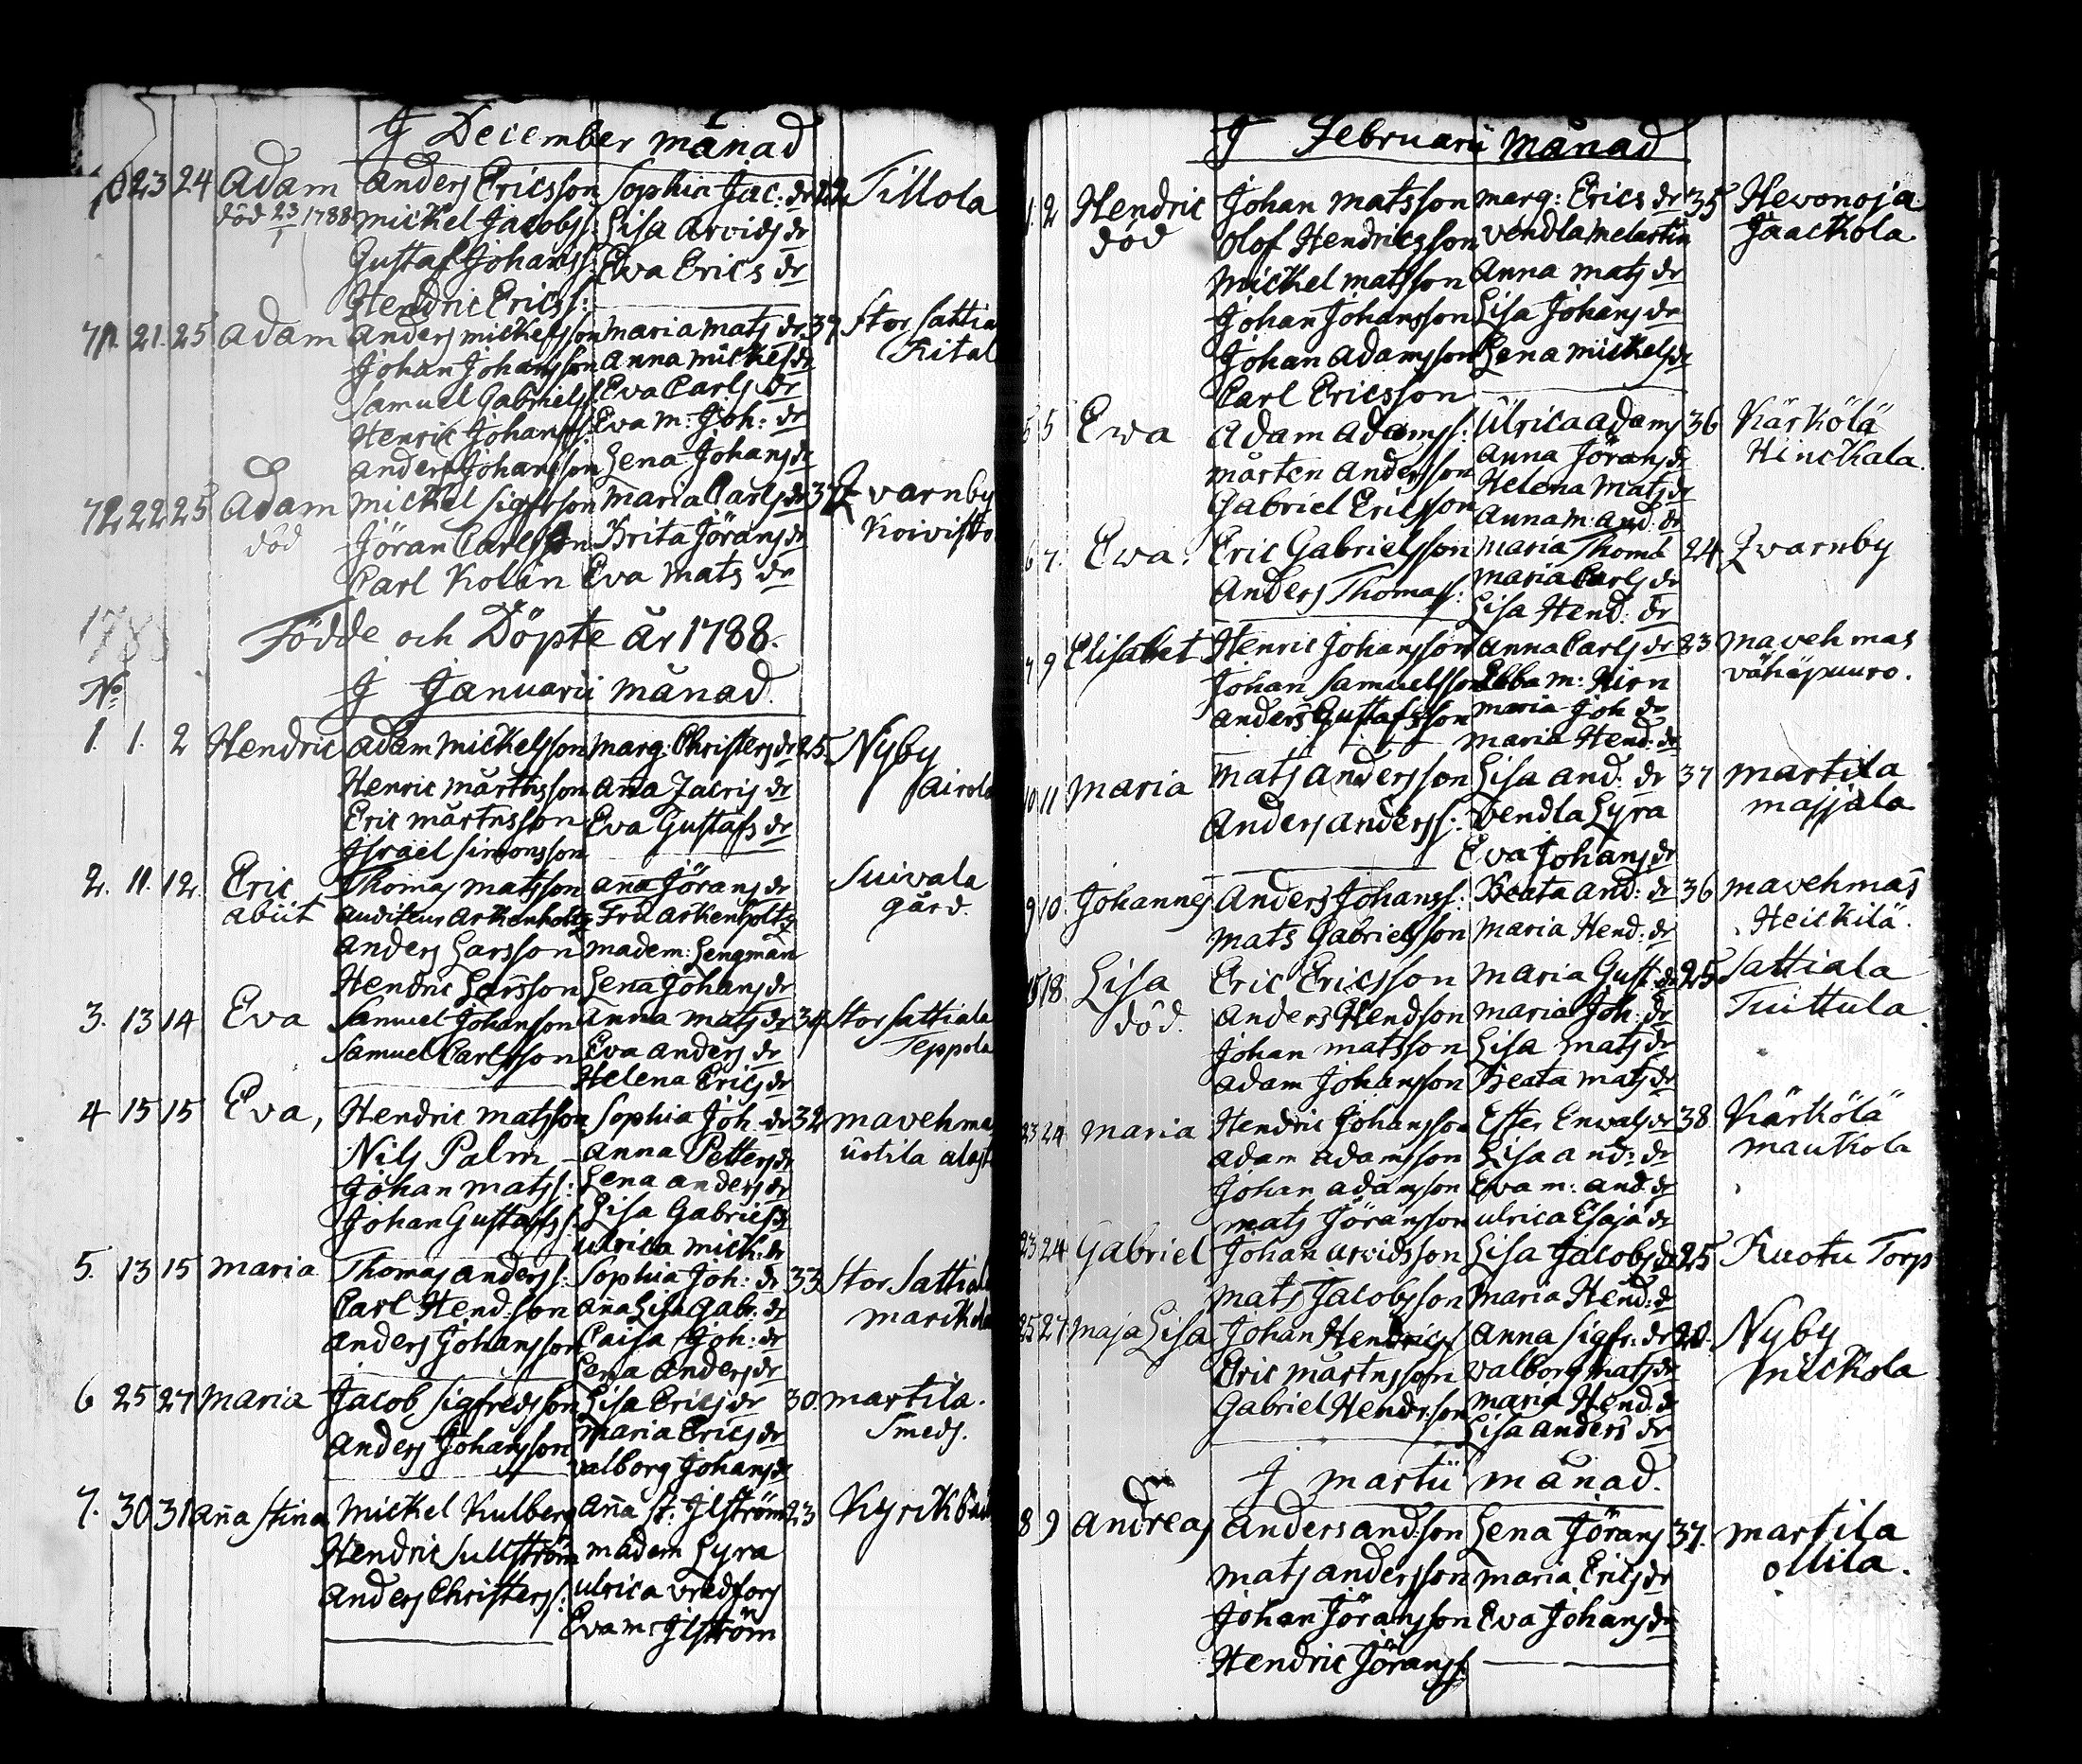 I December månad
23 24 Adam Anders Ericsson Sophia Jac: dr 22 Tillola
död 23/1 1788 Mickel Jacobss: Lisa Arvids dr
Gustaf Johanss: Eva Erics dr
Hendric Ericss:
71. 21. 25 Adam Anders Mickelsson Maria Mats dr 37 Stor Sattia
Johan Johansson Anna Mickels dr Kital
Samuel Gabrielss: Eva Carls dr
Henric Johanss: Eva M: Joh: dr
Anders Johansson Lena Johans dr
72 22 25 Adam Mickel Sigfrson Maria Carls dr 37 Qvarnby
död Jöran Carlsson Brita Jörans dr Koivisto
Carl Kolin Eva Mats dr
1788
Födde och Döpte År 1788.
No
I Januarii månad
1. 1. 2 Hendric Adam Mickelsson Marg: Christers dr 25. Nyby
Henric Mårthsson Ana Zacris dr Airola
Eric Mårtnsson Eva Gustafs dr
Israel Simonsson
2. 11. 12. Eric Thomas Matsson Ana Jörans dr Suivala
abiit Auditeur Arkenholtz Fru Arkenholtz gård.
Anders Larsson Madem: Lengman
Hendric Larsson Lena Johans dr
3. 13 14 Eva Samuel Johanson Anna Mats dr 34 Stor Sattiala
Samuel Carlsson Eva Anders dr Teppola
Helena Erics dr
4 15 15 Eva, Hendric Matsson Sophia Joh: dr 32 Mavehma
Nils Palm Anna Petters dr Uotila
Johan Matss: Lena Anders dr
Johan Gustafss: Lisa Gabriels
Ulrica Mick: dr
5. 13 15 Maria Thomas Anderss: Sophia Joh: dr 33 Stor Sattial
Carl Hend:son Ana Lisa Gabr: dr
Anders Johansson Caisa Joh: dr
Lena Anders dr
6 25 27 Maria Jacob Sigfredsson Lisa Erics dr 30. Martila.
Anders Johansson Maria Erics dr Smeds.
Valborg Johans dr
7. 30 31 Ana Stina Mickel Kulberg Ana St: Ilström 23 Kyrk
Hendric Sullström Madem Lyra
Anders Christerss: Ulrica Vredfors
Eva M: Ilström
I Februarii Månad
1. 2 Hendric Johan Matsson Marg: Erics dr 35 Hevonoja
död Olof Hendricsson Vendla Melartin Jaackola
Mickel Matsson Anna Mats dr
Johan Johansson Lisa Johans dr
Johan Adamsson Lena Mickels dr
Carl Ericsson
5 Eva Adam Adamss: Ulrica Adams 36 Kärkölä
Mårten Andersson Anna Jörans dr Hinckala.
Gabriel Ericsson Helena Mats dr
Anna M: And: dr
6 7. Eva. Eric Gabrielsson Maria Thoms 24 Qvarnby
Anders Thomass: Maria Carls dr
Lisa Hend: dr
7 9 Elisabet Henric Johansson Anna Carls dr 23 Mavehmas
Johan Samuelsson Ebba M: Hirn vähäpuuro.
Anders Gustafsson Maria Joh dr
Maria Hend: dr
10 11 Maria Mats Andersson Lisa And: dr 37 Martila
Anders Anderss: Vendla Lyra Majjala
Eva Johans dr
9 10 Johannes Anders Johanss: Beata And: dr 36 Mavehmas
Mats Gabrielsson Maria Hend: dr Heickilä.
15 18 Lisa Eric Ericsson Maria Gust: dr 25 Sattiala
död. Anders Hendson Maria Joh: dr Tuittula.
Johan Matsson Lisa Mats dr
Adam Johansson Beata Mats dr
23 24 Maria Hendric Johansson Ester Envalds dr 38 Kärkölä
Adam Adamsson Lisa And: dr Maukola
Johan Adamson Eva M: And: dr
Mats Jöransson Ulrica Esaja dr
23 24 Gabriel Johan Arvidsson Lisa Jacobs dr 25 Kuotu Torp
Mats Jacobsson Maria Hend: dr
25 27 Maja Lisa Johan Hendrics Anna Sigfr: dr 20. Nyby
Eric Mårtnsson Valborg Mats dr Mickola
Gabriel Hendr:son Maria Hend: dr
Lisa Anders dr
I Martii månad.
8 9 Andreas Anders And:son Lena Jörans 37. Martila
Mats Andersson Maria Erics dr Ollila.
Johan Jöransson Eva Johans dr
Hendric Jöranss: